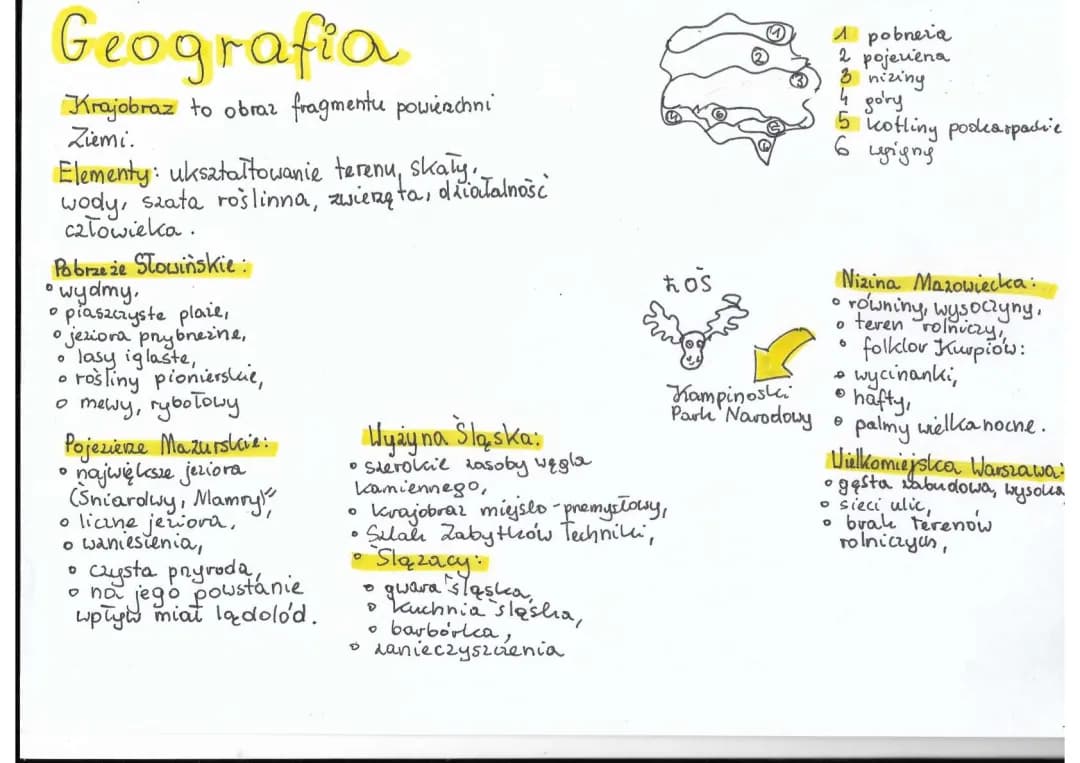 Geografia
Krajobraz to obraz fragmentu powierzchni
Ziemi.
Elementy: ukształtowanie terenu, skały,
wody, szata roślinna, zwierzęta, działalność
człowieka.
1 pobrzeża
2 pojezierza
3 niziny
4 góry
5 kotliny podkarpackie
6 wyżyny
1
2
3
4
6
5
Pobrzeże Słowińskie:
wydmy,
piaszczyste plaże,
jeziora przybrzeżne,
lasy iglaste,
rośliny pionierskie,
mewy, rybołowy
Pojezierze Mazurskie:
największe jeziora
(Śniardwy, Mamry),
liczne jeziora,
wzniesienia,
czysta przyroda,
na jego powstanie
wpływ miał lądolód.
Wyżyna Śląska:
szerokie zasoby węgla
kamiennego,
krajobraz miejsko-przemysłowy,
Szlak Zabytków Techniki,
Ślązacy:
gwara śląska,
kuchnia śląska,
barbórka,
zanieczyszczenia
ŁOŚ
Kampinoski
Park Narodowy
Nizina Mazowiecka:
równiny, wysoczyny,
teren rolniczy,
folklor Kurpiów:
wycinanki,
hafty,
palmy wielkanocne.
Wielkomiejska Warszawa:
gęsta zabudowa, wysoka
sieci ulic,
brak terenów
rolniczych,